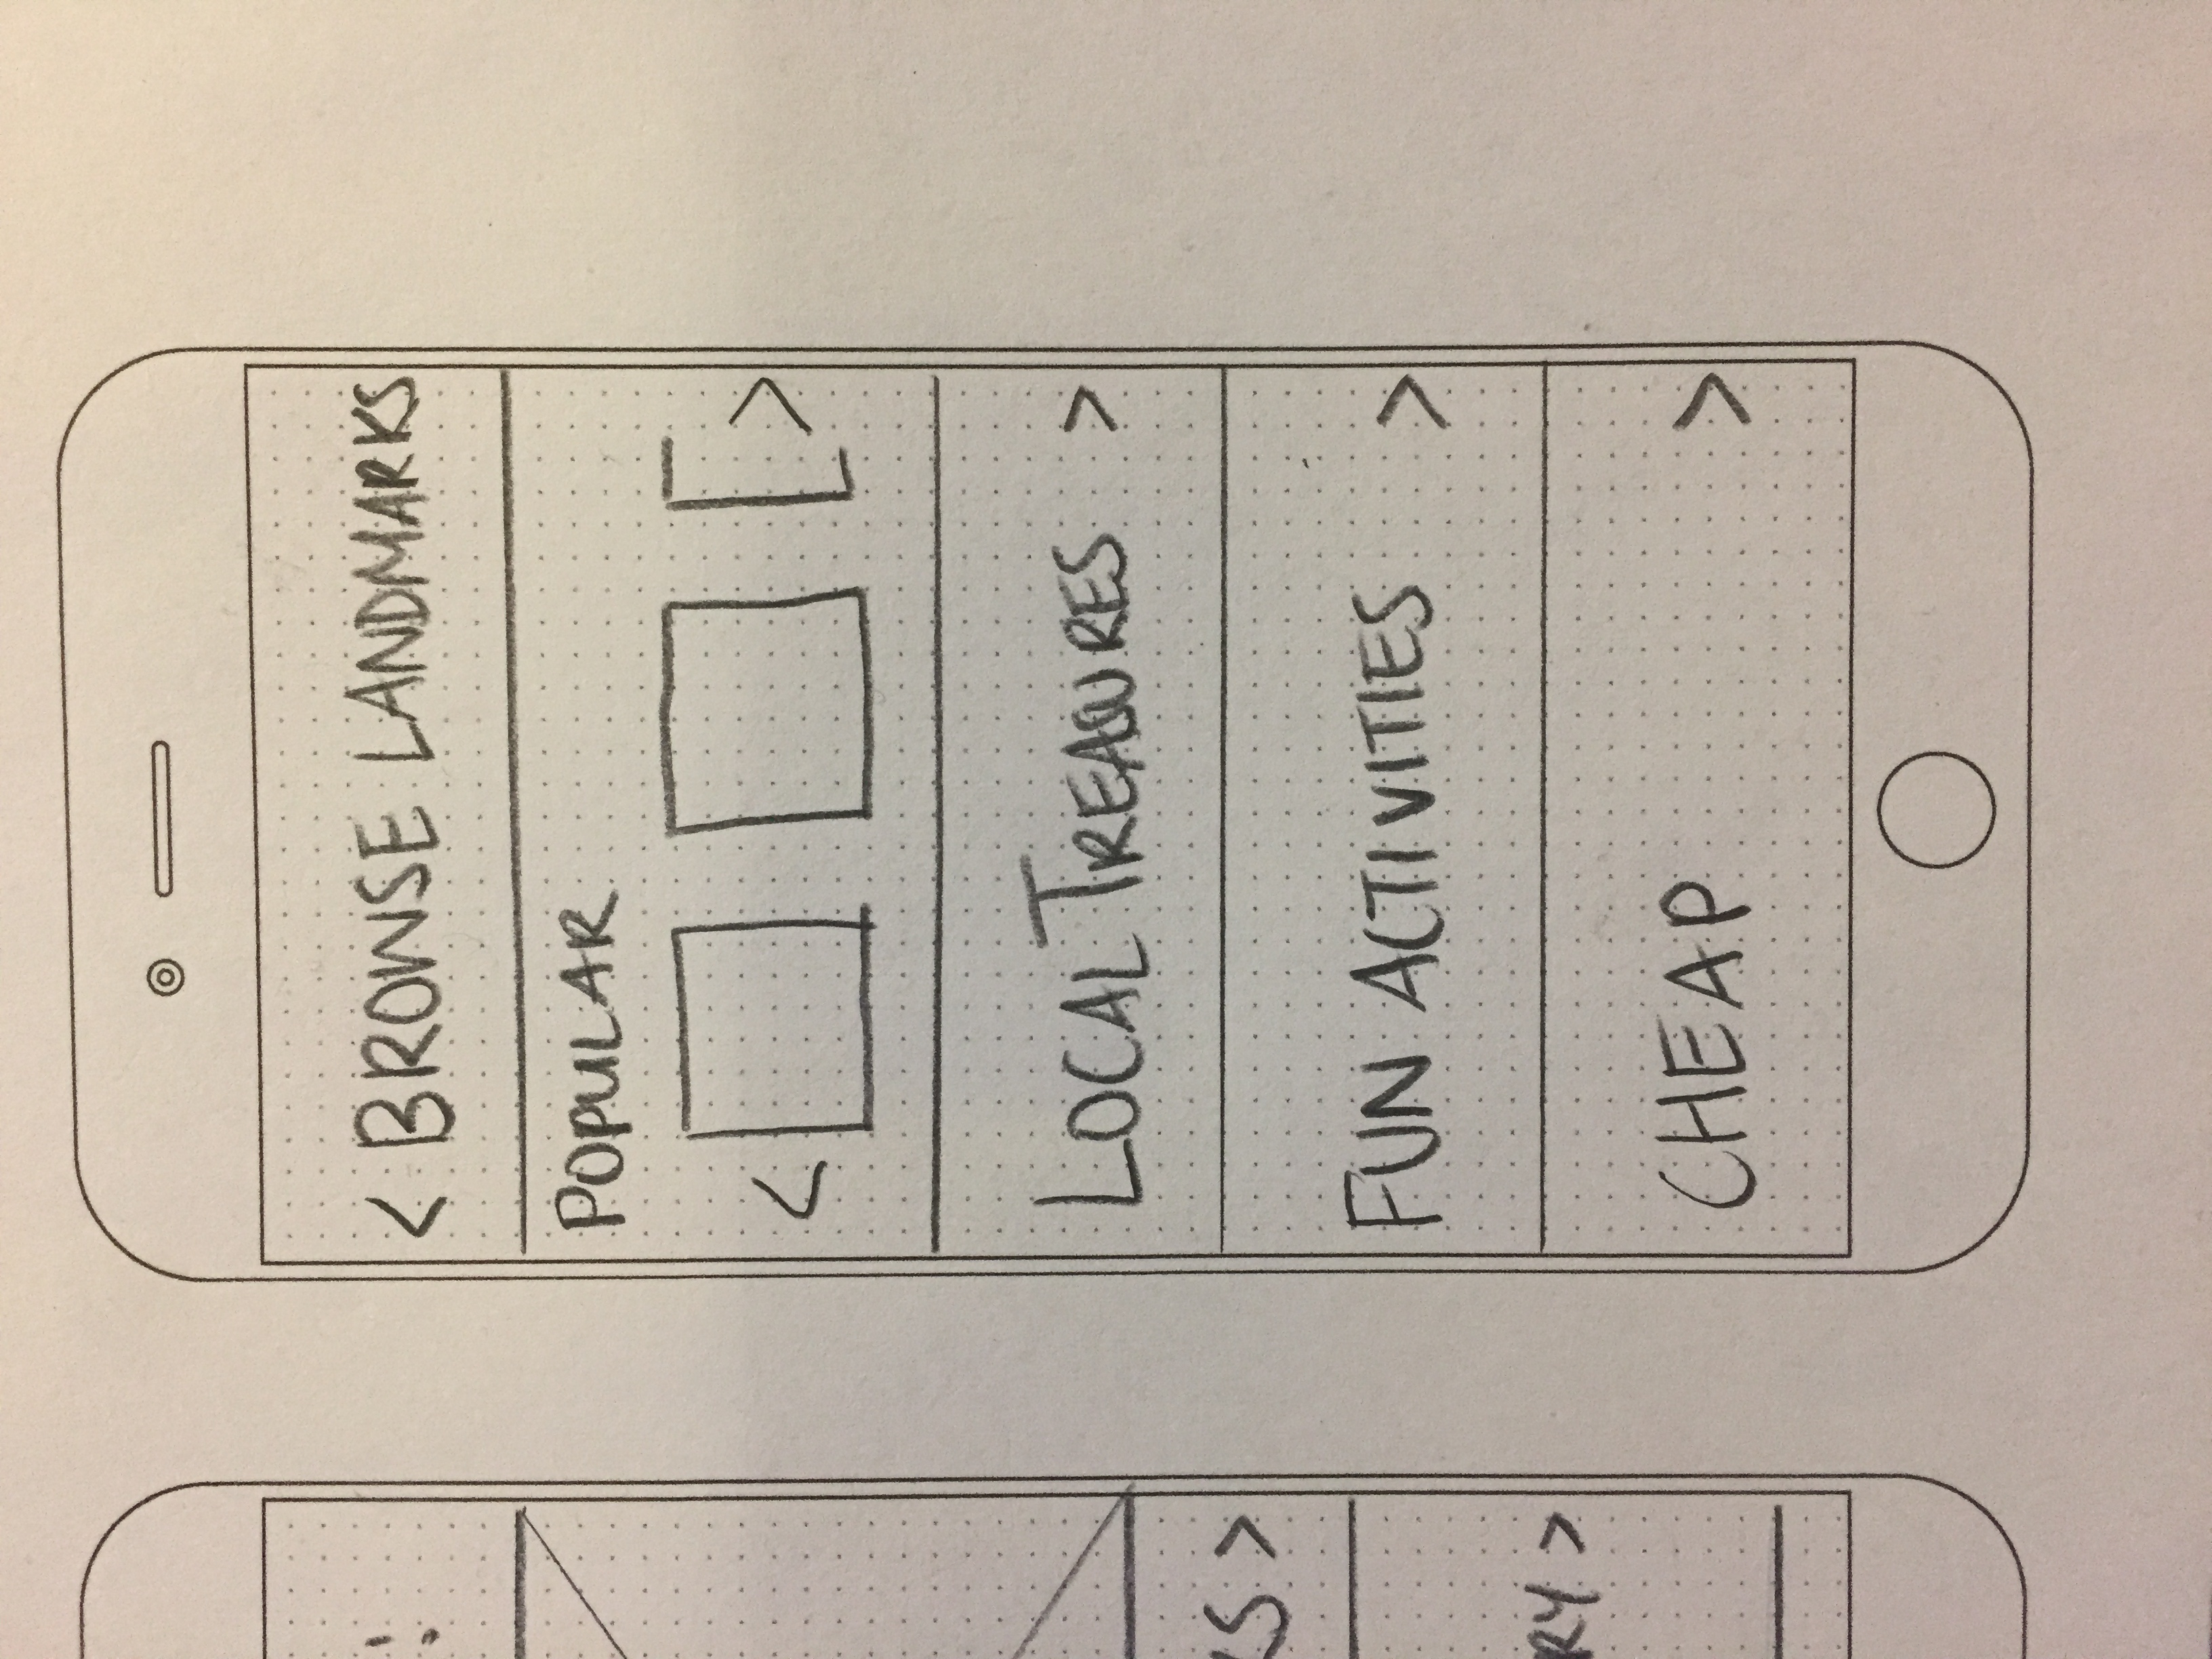 < BROWSE LANDMARKS
POPULAR
< >
LOCAL TREASURES >
FUN ACTIVITIES >
CHEAP >
KS >
RY >